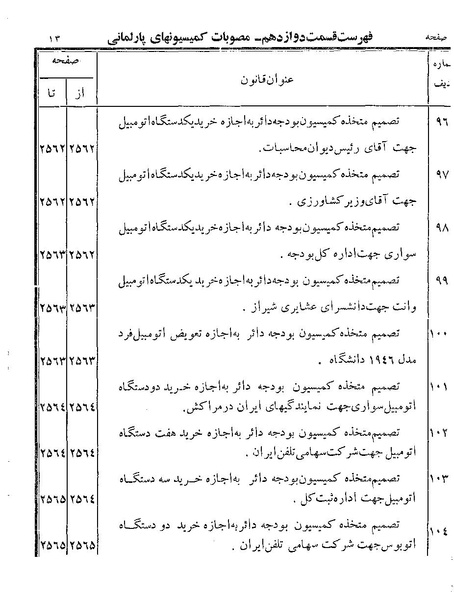 صفحه فهرست قسمت دوازدهم ــ مصوبات کمیسیونهای پارلمانی ۱۳
شماره ردیف عنوان قانون صفحه
از تا
۹۶ تصمیم متخذه کمیسیون بودجه دائر به اجازه خرید یکدستگاه اتومبیل
جهت آقای رئیس دیوان محاسبات. ۲۵۶۲ ۲۵۶۲
۹۷ تصمیم متخذه کمیسیون بودجه دائر به اجازه خرید یکدستگاه اتومبیل
جهت آقای وزیر کشاورزی . ۲۵۶۲ ۲۵۶۲
۹۸ تصمیم متخذه کمیسیون بودجه دائر به اجازه خرید یکدستگاه اتومبیل
سواری جهت اداره کل بودجه . ۲۵۶۲ ۲۵۶۳
۹۹ تصمیم متخذه کمیسیون بودجه دائر به اجازه خرید یکدستگاه اتومبیل
وانت جهت دانشسرای عشایری شیراز . ۲۵۶۳ ۲۵۶۳
۱۰۰ تصمیم متخذه کمیسیون بودجه دائر به اجازه تعویض اتومبیل فرد
مدل ۱۹۴۶ دانشگاه . ۲۵۶۳ ۲۵۶۳
۱۰۱ تصمیم متخذه کمیسیون بودجه دائر به اجازه خرید دو دستگاه
اتومبیل سواری جهت نمایندگیهای ایران در مراکش. ۲۵۶۴ ۲۵۶۴
۱۰۲ تصمیم متخذه کمیسیون بودجه دائر به اجازه خرید هفت دستگاه
اتومبیل جهت شرکت سهامی تلفن ایران . ۲۵۶۴ ۲۵۶۴
۱۰۳ تصمیم متخذه کمیسیون بودجه دائر به اجازه خرید سه دستگاه
اتومبیل جهت اداره ثبت کل . ۲۵۶۴ ۲۵۶۵
۱۰۴ تصمیم متخذه کمیسیون بودجه دائر به اجازه خرید دو دستگاه
اتوبوس جهت شرکت سهامی تلفن ایران . ۲۵۶۵ ۲۵۶۵